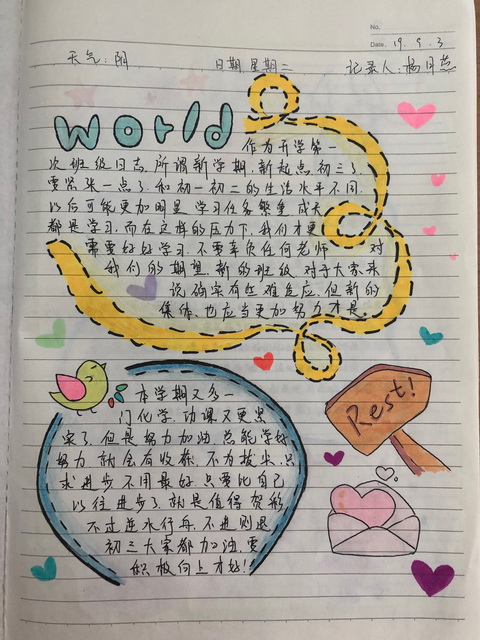 No.
Date. 19. 9. 3
天气:阴 日期 星期二 记录人:杨月
world
作为开学第一
次班级日志,所谓新学期,新起点,初三了,
要紧张一点了,和初一初二的生活水平不同,
以后可能更加明显,学习任务繁重,成天
都是学习,而在这样的压力下,我们才更
需要好好学习,不要辜负任何老师 对
我们的期望,新的班级,对于大家来
说确实有些难适应,但新的
集体,也应当更加努力才是。
本学期又多一
门化学,功课又更紧
实了,但是努力加油,总能学好
努力,就会有收获,不为拔尖,只
求进步,不用最好,只要比自己
以往进步了,就是值得贺称
不过逆水行舟,不进则退
初三大家都加油,要
积极向上才好!
Rest!